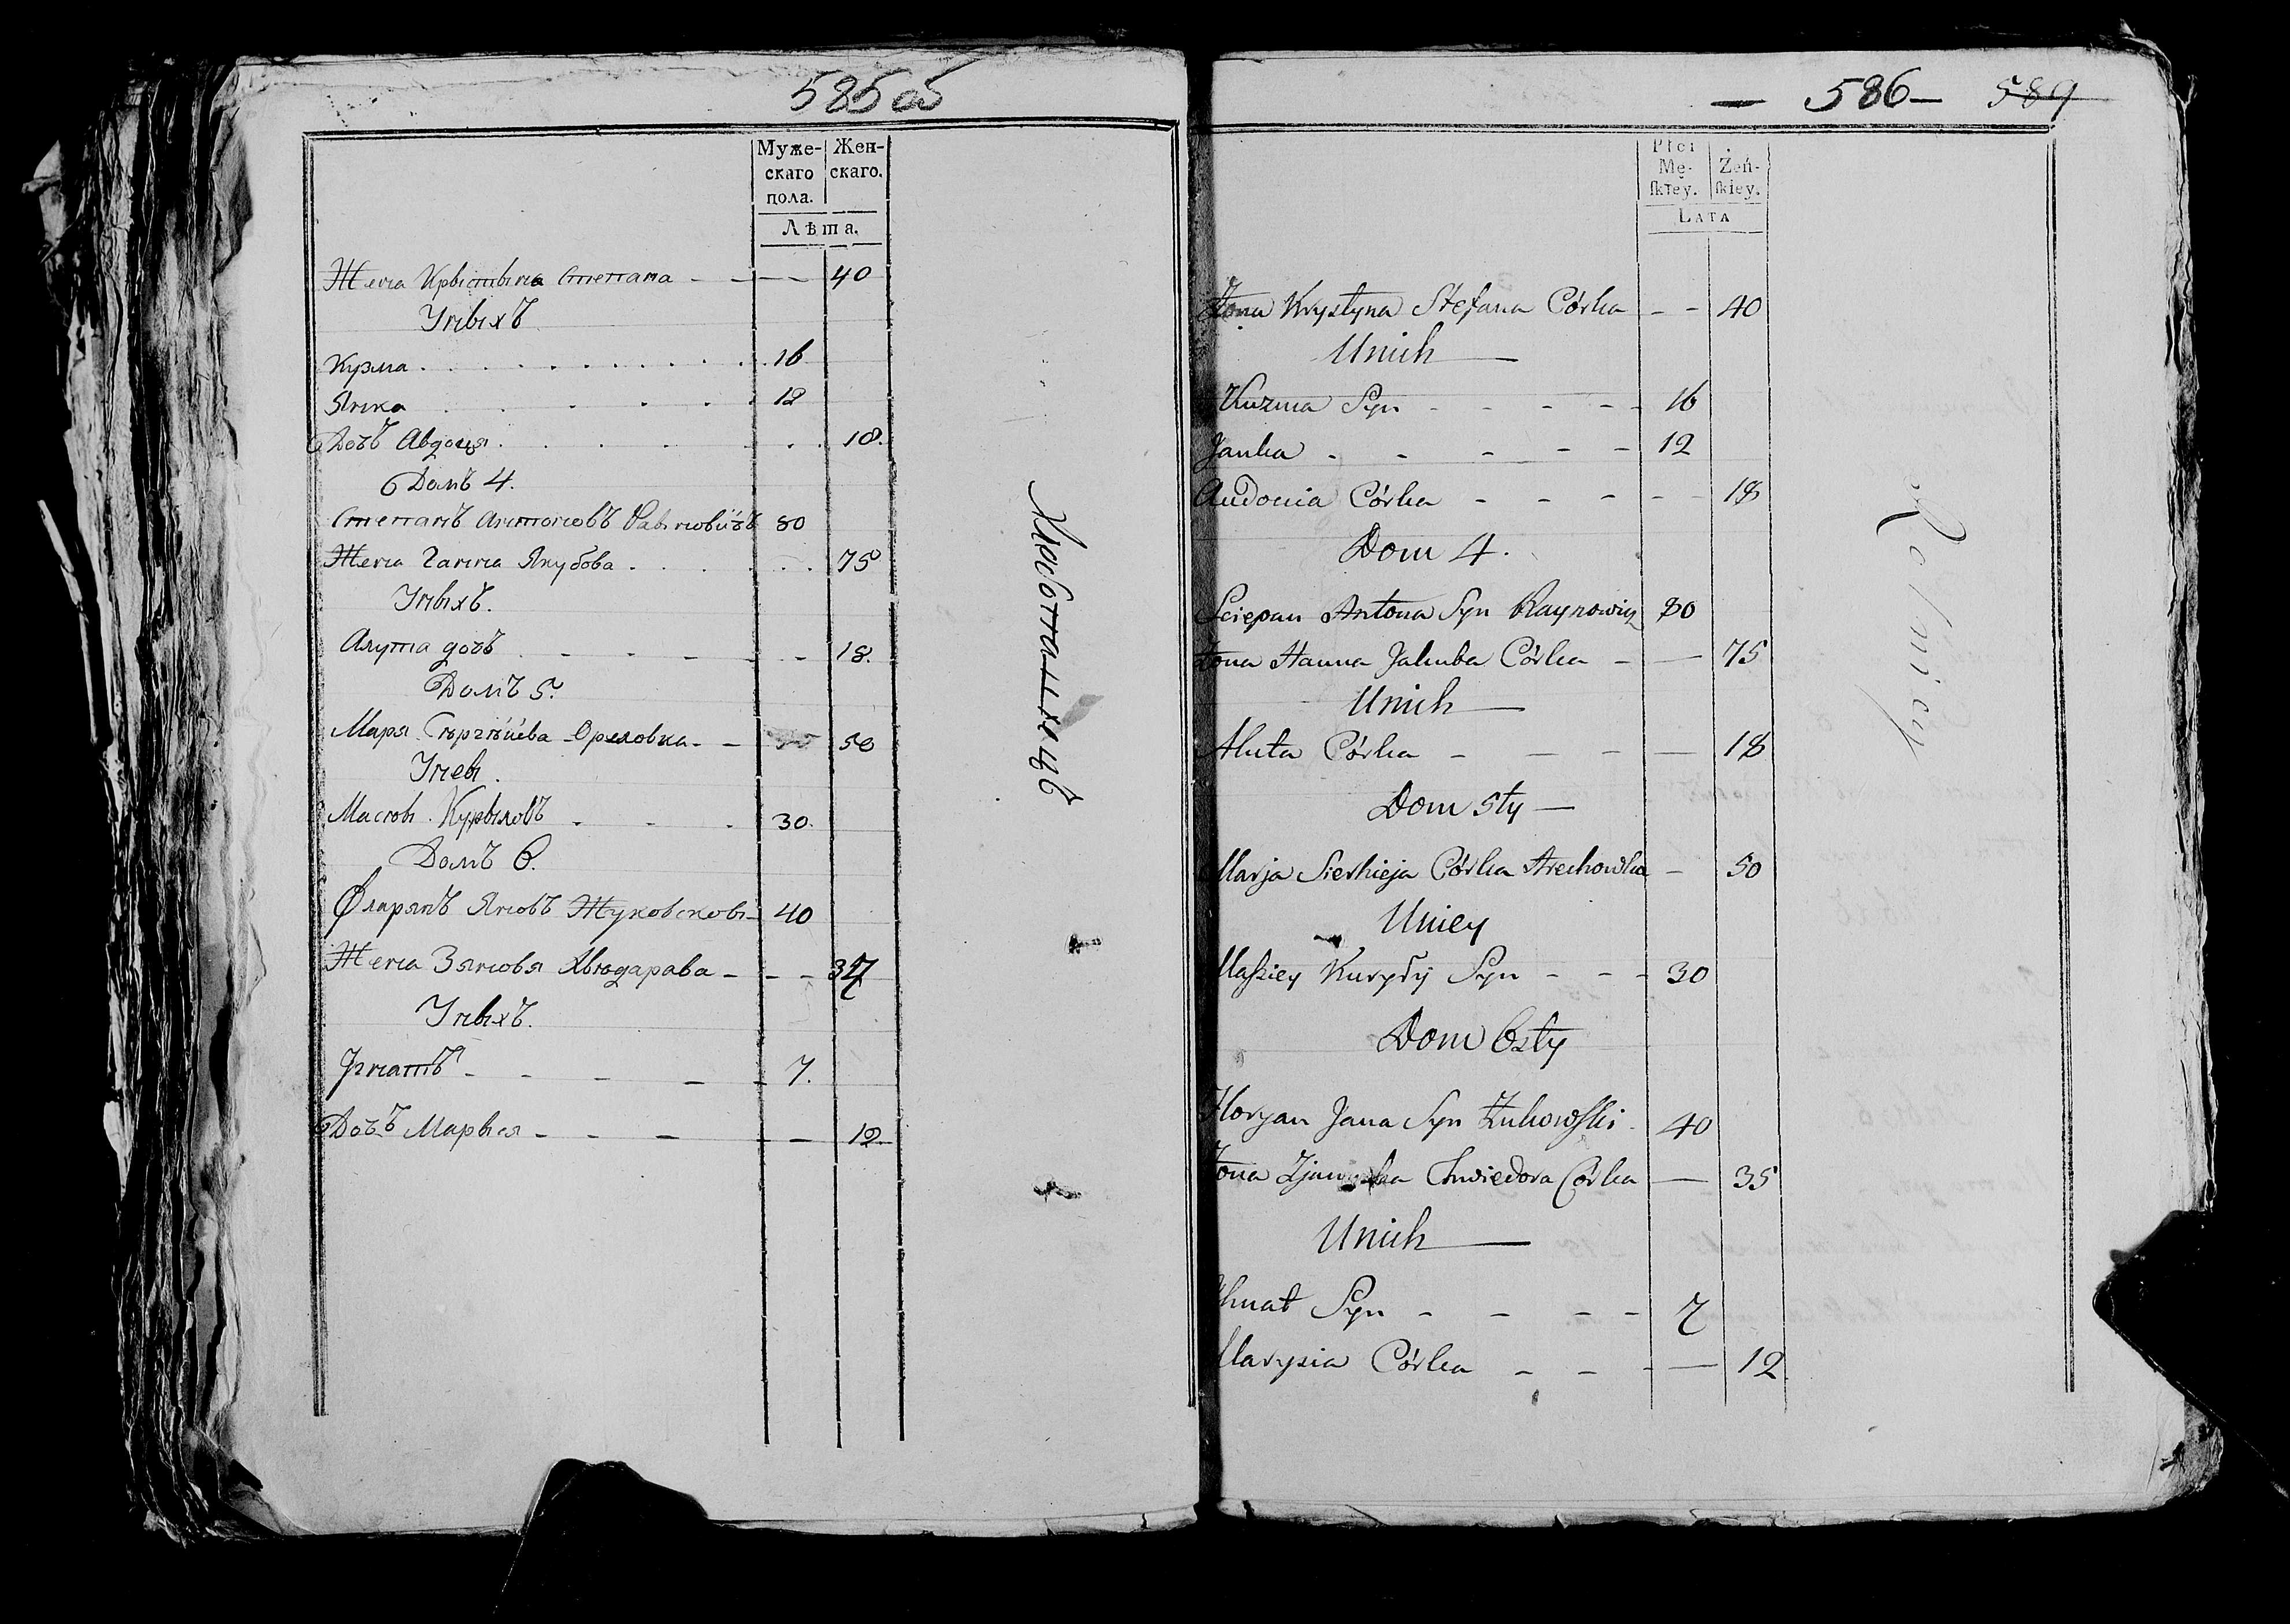 585 об
Муже-
скаго
пола.
Жен-
скаго.
Лѣта.
Жена Крыстына Степана - - - - 40
Уныхъ
Кузма . . . . . . . . . . . 16
Янка . . . . . . . 12
Дочъ Авдоця . . . . . . . 18.
Домъ 4.
Степанъ Антоновъ 80
Жена Ганна Якубова . . . . . . . 75
Уныхъ.
Алута дочъ . - - - - - 18.
Домъ 5.
Маря Сѣргѣйева Ореховка - - 50
Уней.
Масѣй Курыловъ - - - 30.
Домъ 6.
Флорянъ Яновъ Жуковскій - 40
Жена Зяновя Хвѣдарава - - - 37
Уныхъ.
Игнатъ - - - - - 7.
Дочъ Марыся - - - - - 12
- 586 - 589
Płci
Mę-
ſkiey.
Żeń-
ſkiey.
LATA
Żona Krystyna Stefana Córka - - 40
Unich
Kuzma Syn - - - - - 16
Janka - - - - - 12
Audocia Córka - - - - - 18
Dom 4.
Sciepan Antona Syn Raynowicz 80
Żona Hanna Jakuba Córka - — 75
Unich —
Aluta Córka - - - - 18
Dom 5ty —
Marja Sierhieja Córka Arechowka - 50
Uniey
Maſsiey Kuryły Syn - - - 30
Dom 6sty
Floryan Jana Syn Żukowſki 40
Żona Chwiedora Córka — 35
Unich —
Ihnat Syn - - - - 7
Marysia Córka - - - — 12